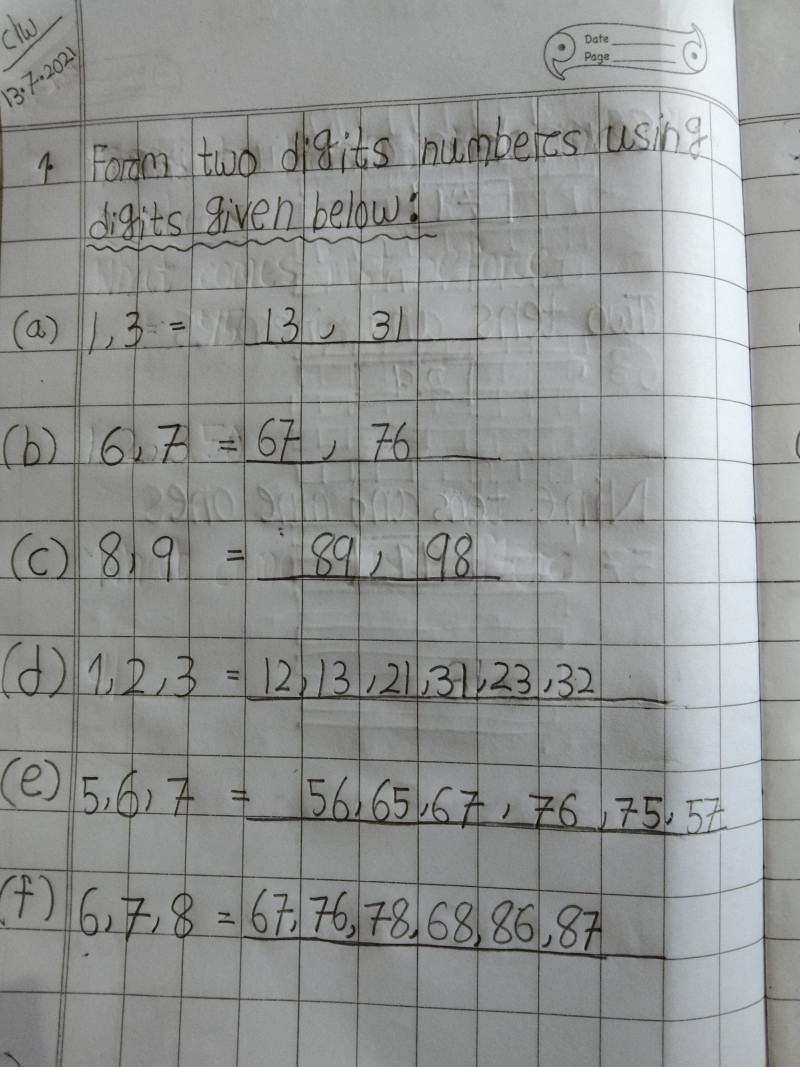 c/w
13.7.2021
Date
Page
1. Form two digits numbers using
digits given below:
(a) 1,3 = 13, 31
(b) 6,7 = 67, 76
(c) 8,9 = 89, 98
(d) 1,2,3 = 12,13,21,31,23,32
(e) 5,6,7 = 56,65,67,76,75,57
(f) 6,7,8 = 67,76,78,68,86,87